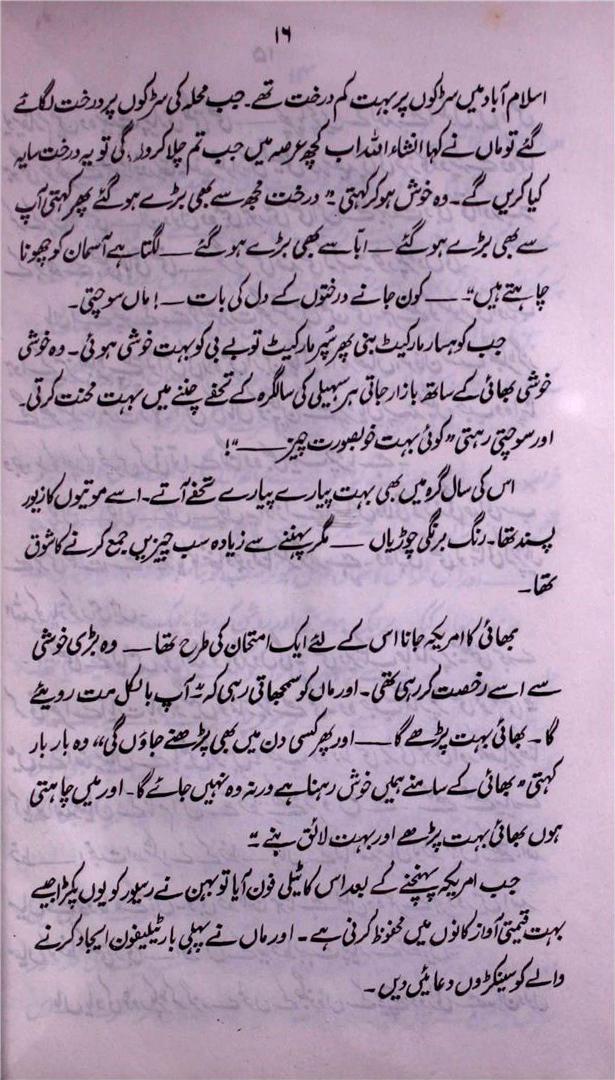 ۱۶
اسلام آباد میں سڑکوں پر بہت کم درخت تھے۔ جب محلہ کی سڑکوں پر درخت لگائے
گئے تو ماں نے کہا انشاء اللہ اب کچھ عرصہ میں جب تم چلا کرو گی تو یہ درخت سایہ
کیا کریں گے۔ وہ خوش ہو کر کہتی۔ "درخت مجھ سے بھی بڑے ہو گئے پھر کہتی آپ
سے بھی بڑے ہو گئے — ابا سے بھی بڑے ہو گئے — لگتا ہے آسمان کو چھونا
چاہتے ہیں"۔ — کون جانے درختوں کے دل کی بات —! ماں سوچتی۔
جب کوہسار مارکیٹ بنی پھر سُپر مارکیٹ تو بے بی کو بہت خوشی ہوئی۔ وہ خوشی
خوشی بھائی کے ساتھ بازار جاتی ہر سہیلی کی سالگرہ کے تحفے چننے میں بہت محنت کرتی۔
اور سوچتی رہتی "کوئی بہت خوبصورت چیز —"!
اس کی سال گرہ میں بھی بہت پیارے پیارے تحفے آتے۔ اسے موتیوں کا زیور
پسند تھا۔ رنگ برنگی چوڑیاں — مگر پہننے سے زیادہ سب چیزیں جمع کرنے کا شوق
تھا۔
بھائی کا امریکہ جانا اس کے لئے ایک امتحان کی طرح تھا — وہ بڑی خوشی
سے اسے رخصت کر رہی تھی۔ اور ماں کو سمجھاتی رہی کہ "آپ بالکل مت رویئے
گا۔ بھائی بہت پڑھے گا — اور پھر کسی دن میں بھی پڑھنے جاؤں گی" وہ بار بار
کہتی "بھائی کے سامنے ہمیں خوش رہنا ہے ورنہ وہ نہیں جائے گا۔ اور میں چاہتی
ہوں بھائی بہت پڑھے اور بہت لائق بنے۔"
جب امریکہ پہنچنے کے بعد اس کا ٹیلی فون آیا تو بہن نے ریسیور کو یوں پکڑا جیسے
بہت قیمتی آواز کانوں میں محفوظ کرنی ہے۔ اور ماں نے پہلی بار ٹیلیفون ایجاد کرنے
والے کو سینکڑوں دعائیں دیں۔